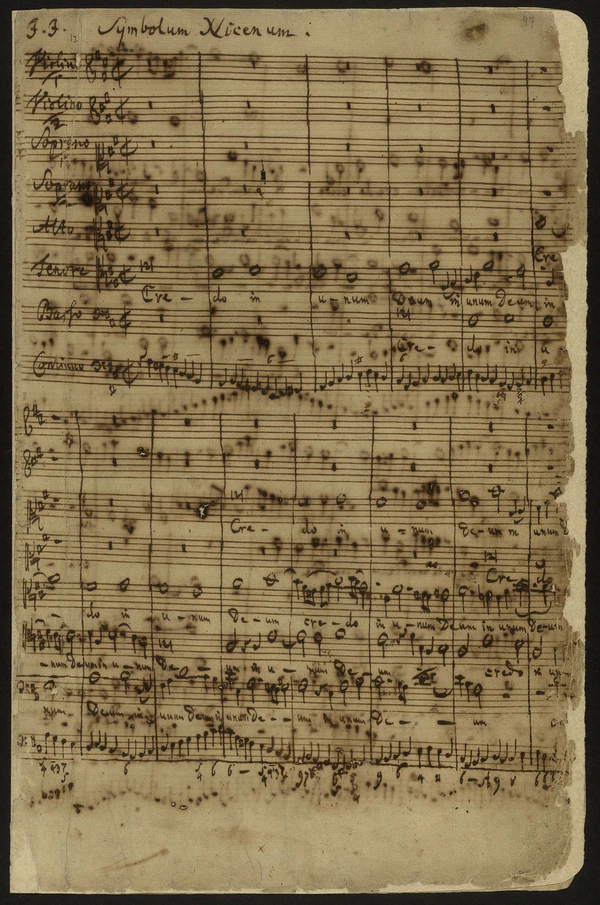 J. J. Symbolum Nicenum.
Violino 1
Violino 2
Soprano 1
Soprano
Alto
Cre
Tenore
Cre - do in u - num Deum in unum Deum in
Basso
Cre - do in u
Continuo
Cre - do in u - num De - um in unum
Cre - do
do in u - num De - um cre - do in u - num Deum in unum Deum
num Deum in u - num De - um in u - num De - um credo in un
num Deum in unum Deum in unum De - um in unum De - um